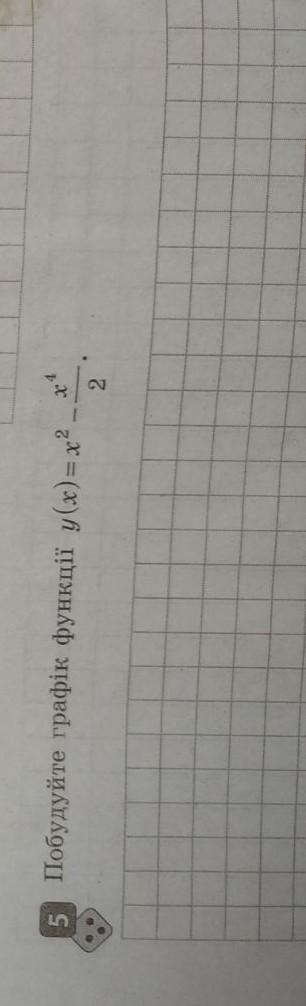 5 Побудуйте графік функції y(x) = x² − x⁴/2.